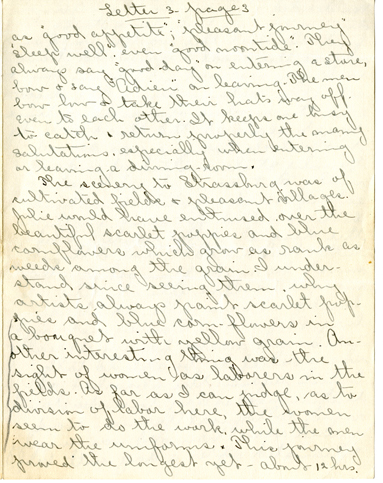 Letter 3. page 3
as "good appetite"; "pleasant journey"
"sleep well" even "good noontide." They
always say "good day" on entering a store,
bow & say "Adieu" on leaving. The men
bow low & take their hats way off
even to each other. It keeps one busy
to catch & return properly the many
salutations, especially when entering
or leaving a dining-room.
The scenery to Strassburg was of
cultivated fields & pleasant villages.
Julie would have enthused over the
beautiful scarlet poppies and blue
cornflowers which grow as rank as
weeds among the grain. I under-
stand since seeing them, why
artists always paint scarlet pop-
pies and blue corn-flowers in
a bouquet with yellow grain. An-
other interesting thing was the
sight of women as laborers in the
fields. As far as I can judge, as to
division of labor here, the women
seem to do the work, while the men
wear the uniforms. This journey
proved the longest yet - about 12 hrs.